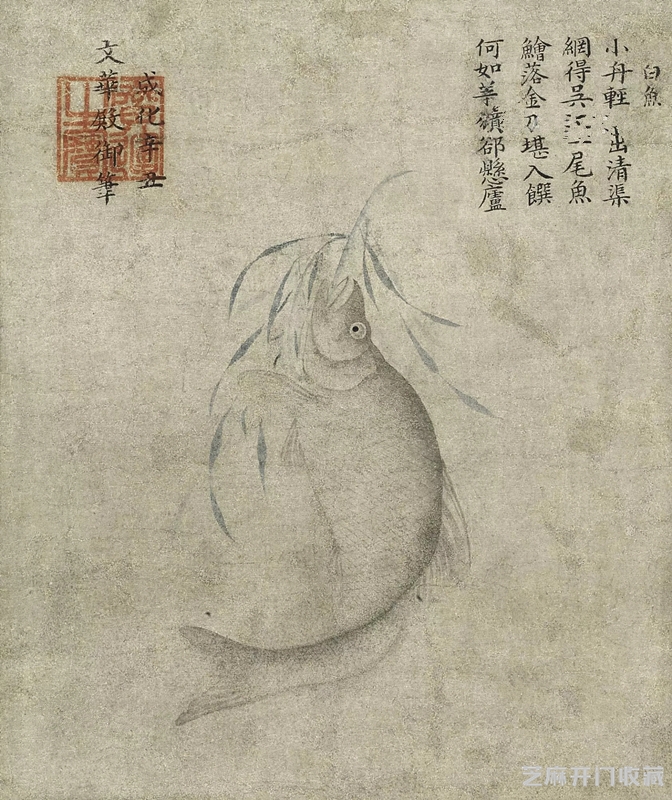 白魚
小舟輕出清渠
網得吳江二尾魚
鱠落金刀堪入饌
何如羊續卻懸廬
成化辛丑
文華殿御筆
芝麻开门收藏